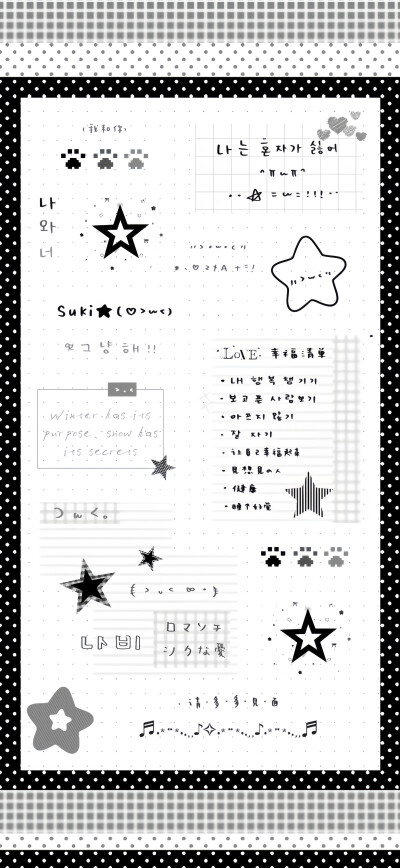 (我和你)
나 는 혼 자 가 싫 어
^πωπ^
☆ = ω = ! ! !
나
와
너
Suki★(♡>ω<)
으 그 냥 해 !!
LOVE 幸福清单
· 내 행 복 챙 기 기
· 보 고 픈 사 람 보 기
· 아 프 지 않 기
· 잘 자 기
· 让自己幸福起来
· 見想見の人
· 健康
· 睡个好覺
>.<
Winter has its
purpose, snow has
its secrets
나 비
ロ マ ン チ
シ ク な 愛
·请·多·多·見·面